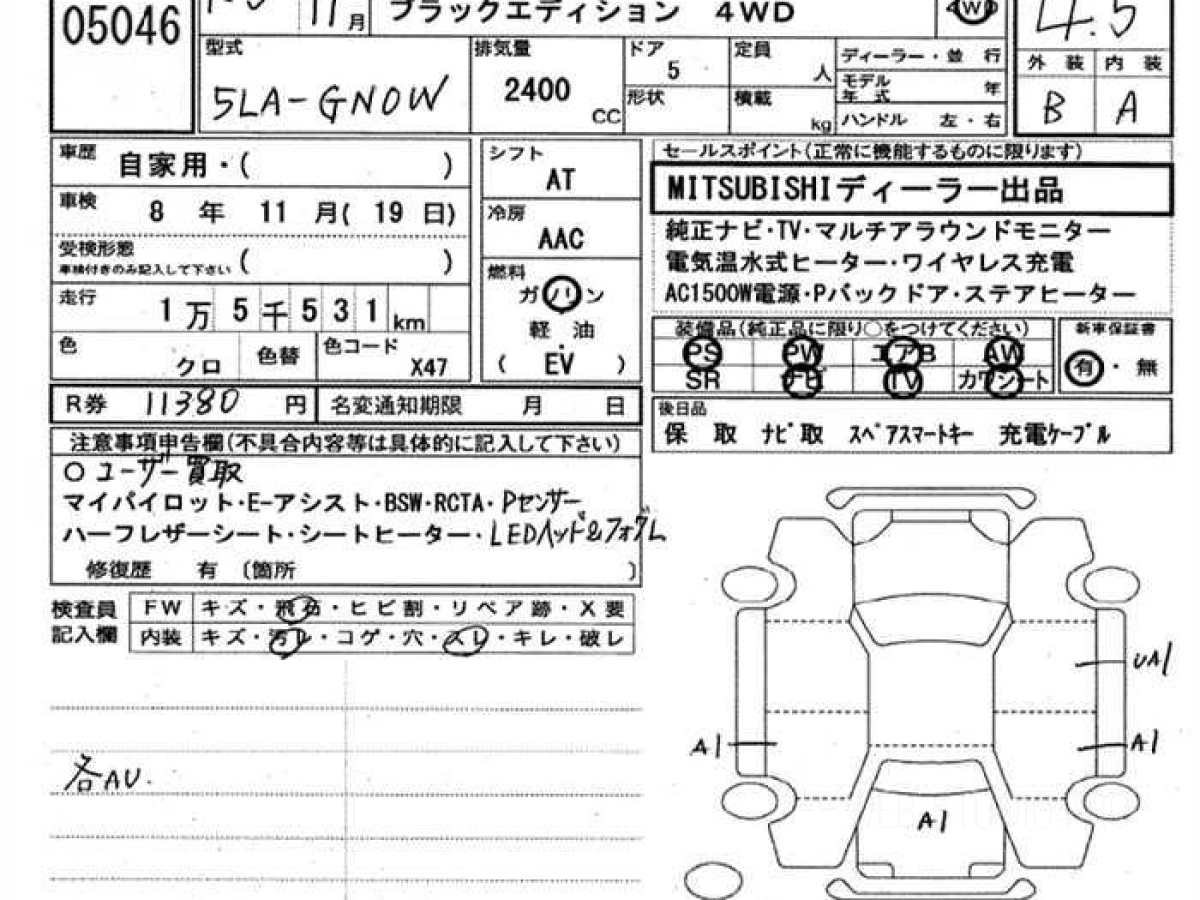 05046
11月
ブラックエディション 4WD
4WD
4.5
型式
5LA-GN0W
排気量
2400
CC
ドア
5
形状
定員
人
積載
kg
ディーラー・並 行
モデル年式 年
ハンドル 左・右
外 装 内 装
B A
車歴
自家用・( )
車検
8 年 11 月( 19 日)
受検形態
車検付きのみ記入して下さい ( )
走行
1 万 5 千 5 3 1 km
色
クロ
色替
色コード
X47
シフト
AT
冷房
AAC
燃料
ガソリン
軽 油
・
( EV )
セールスポイント(正常に機能するものに限ります)
MITSUBISHIディーラー出品
純正ナビ・TV・マルチアラウンドモニター
電気温水式ヒーター・ワイヤレス充電
AC1500W電源・Pバックドア・ステアヒーター
装備品(純正品に限り○をつけてください)
PS PW エアB AW
SR ナビ TV カワシート
新車保証書
有・無
R券 11380 円
名変通知期限 月 日
後日品
保 取 ナビ取 スペアスマートキー 充電ケーブル
注意事項申告欄(不具合内容等は具体的に記入して下さい)
○ユーザー買取
マイパイロット・E-アシスト・BSW・RCTA・Pセンサー
ハーフレザーシート・シートヒーター・LEDヘッド&フォグ
修復歴 有 〔箇所 〕
検査員記入欄
FW キズ・飛石・ヒビ割・リペア跡・X要
内装 キズ・汚レ・コゲ・穴・スレ・キレ・破レ
各AU.
UA1
A1
A1
A1